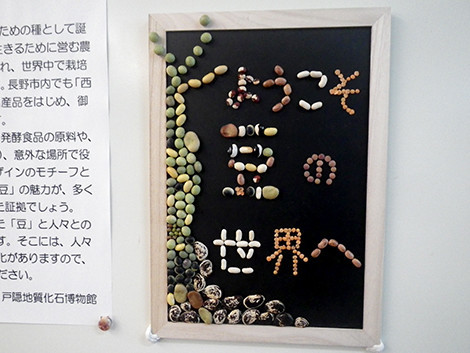 ための種として誕
生きるために営む農
れ、世界中で栽培
。長野市内でも「西
産品をはじめ、御
す。
発酵食品の原料や、
り、意外な場所で役
ザインのモチーフと
豆」の魅力が、多く
た証拠でしょう。
た「豆」と人々との
す。そこには、人々
化がありますので、
ださい。
戸隠地質化石博物館
ようこそ
豆の
世界へ